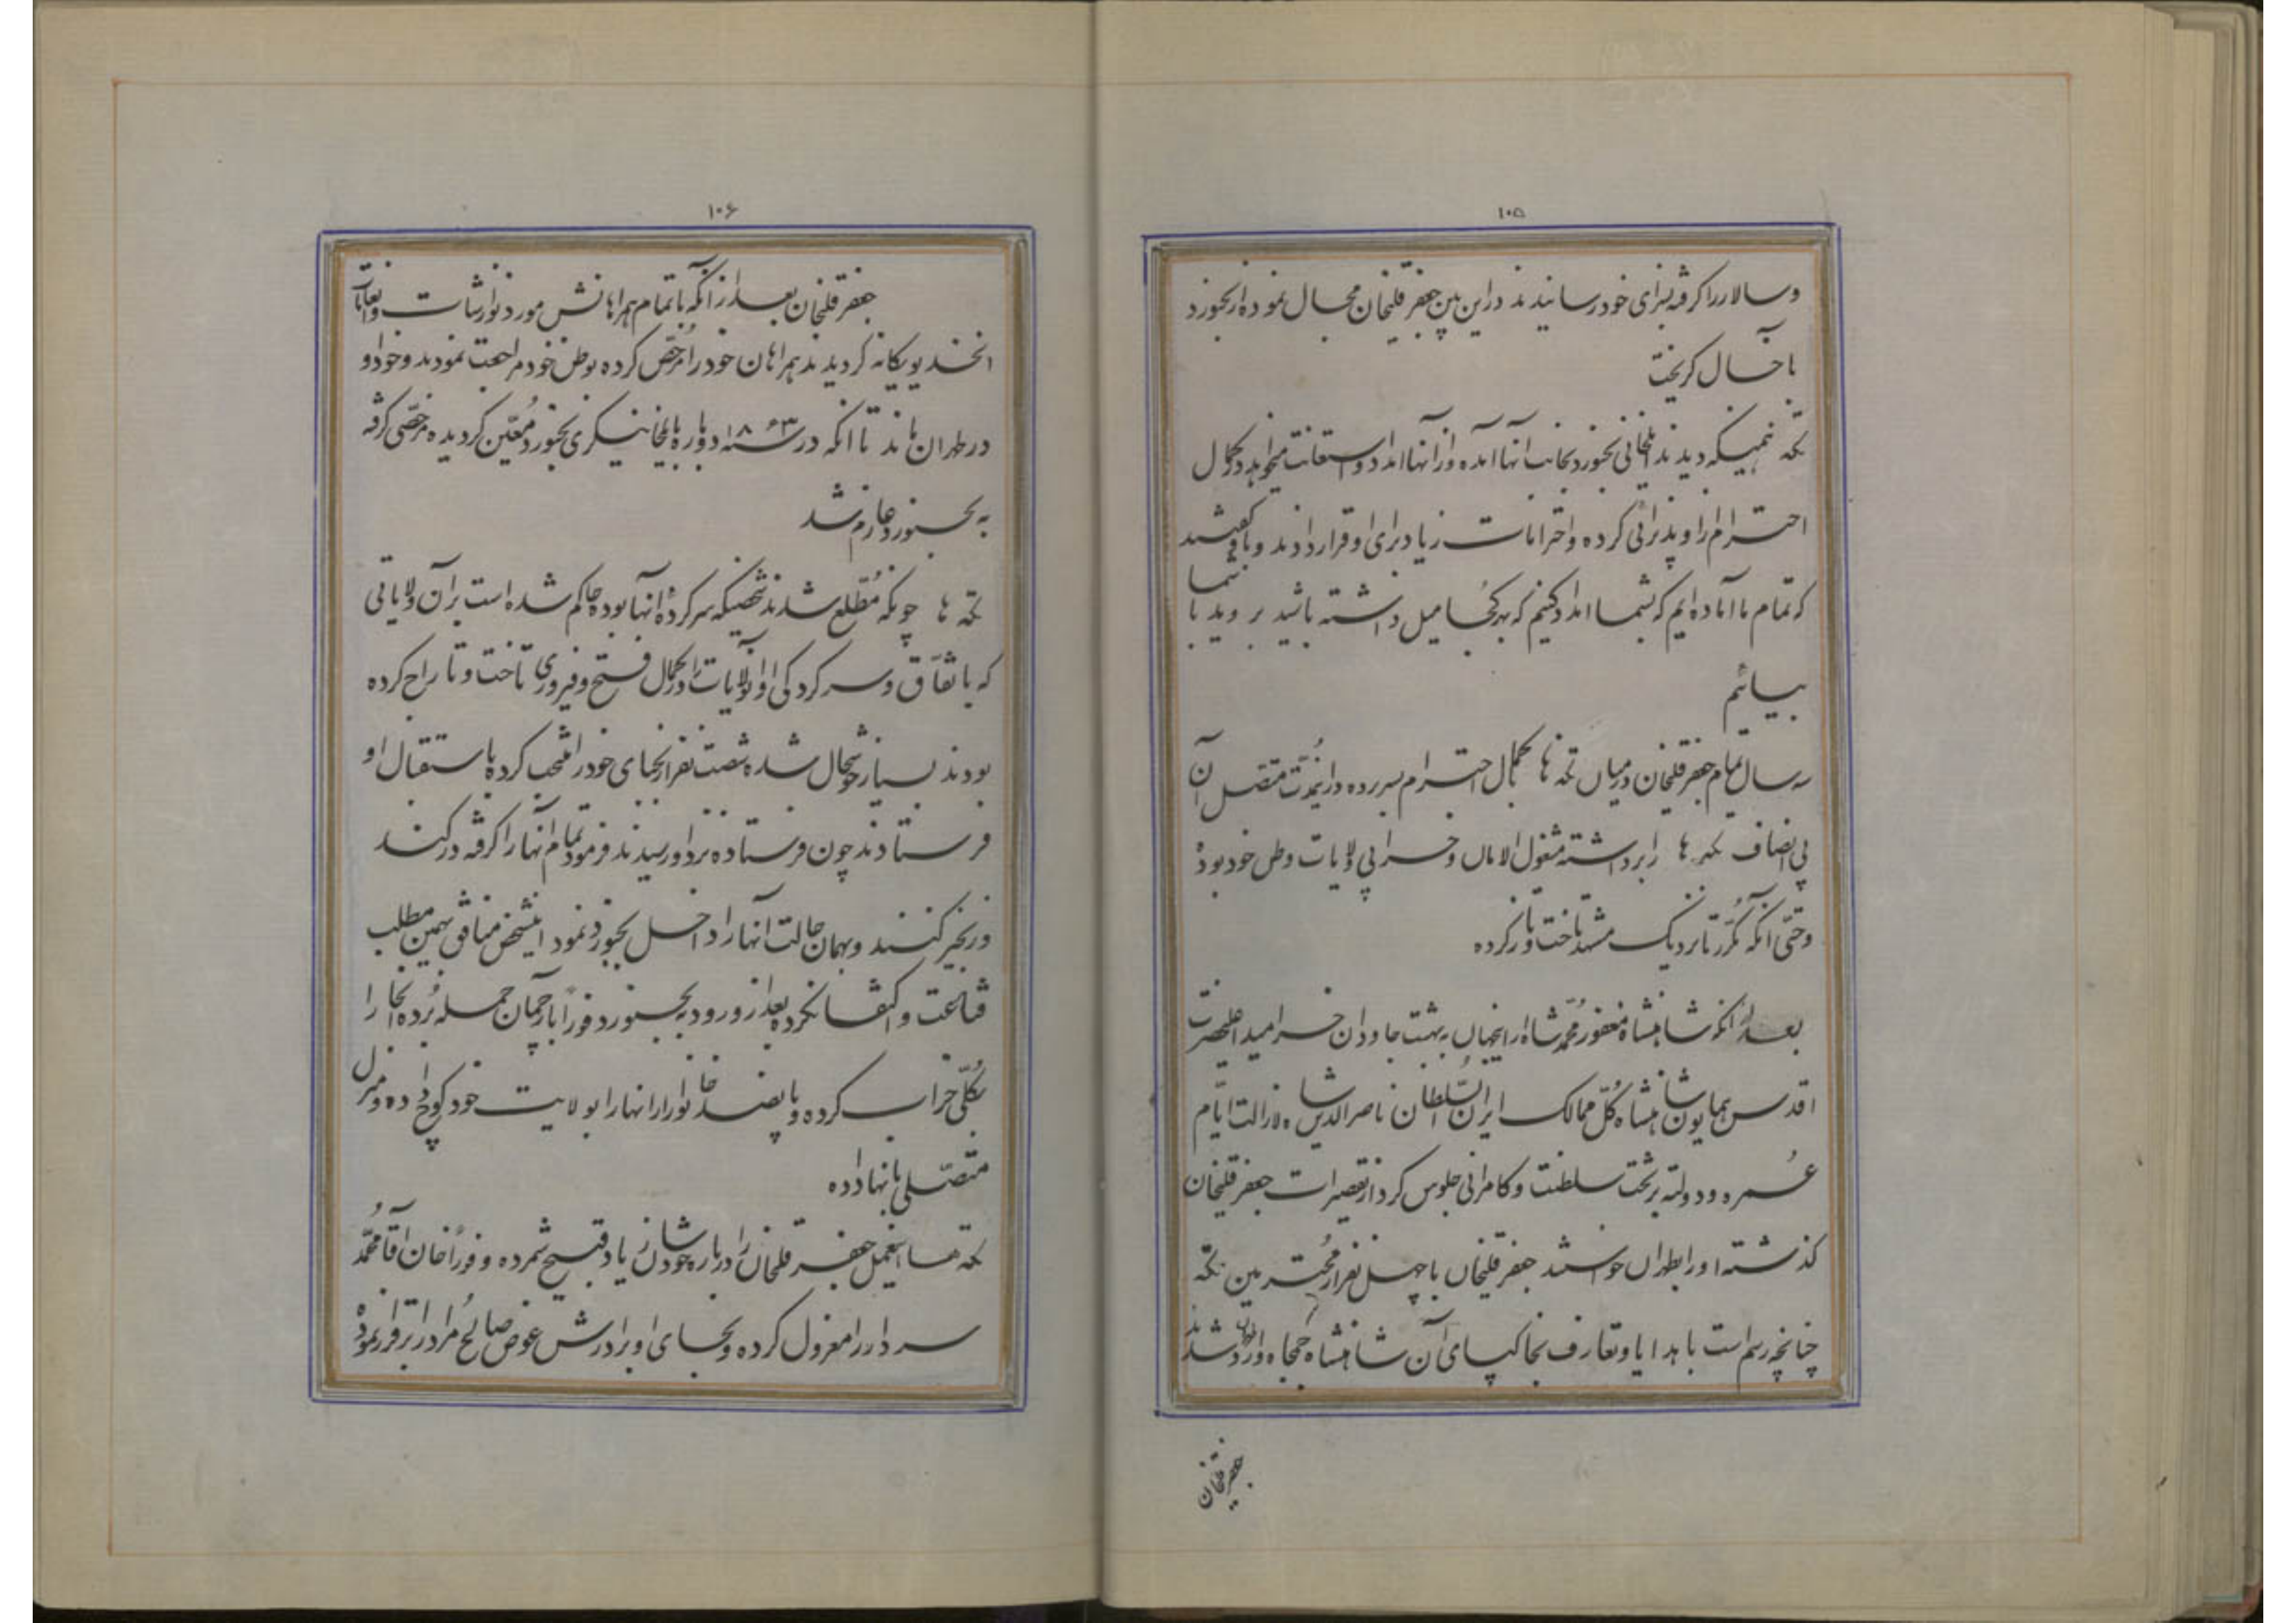 ۱۰۵
وسالار را گرفته بسزای خود رسانیدند در این بین جعفر قلیخان مجال نموده از بجنورد
بآخال گریخت
تکه همینکه دیدند ایلخانی بجنورد بجانب آنها آمده و از آنها امداد و استعانت میخواهد در کمال
احترام از او پذیرائی کرده و احترامات زیاد برای او قرار دادند و باو گفتند
که تمام ما آماده‌ایم که بشما امداد کنیم که بهر کجا میل داشته باشید بروید با شما
بیائیم
سه سال تمام جعفر قلیخان در میان تکه ها بکمال احترام بسر برده در اینمدت متصل آن
بی انصاف تکه ها را برداشته مشغول الامان و خرابی ولایات وطن خود بوده
و حتی آنکه مکرر تا نزدیک مشهد تاخت و تاز کرده
بعد از آنکه شاهنشاه مغفور محمد شاه از اینجهان به بهشت جاودان خرامید اعلیحضرت
اقدس همایون شاهنشاه کل ممالک ایران السلطان ناصرالدین شاه لازالت ایام
عمره و دولته بر تخت سلطنت و کامرانی جلوس کرد از تقصیرات جعفر قلیخان
گذشته او را بطهران خواستند جعفر قلیخان با چهل نفر از محترمین تکه
چنانچه رسم است با هدایا و تعارف بخاکپای آن شاهنشاه جمجاه وارد طهران شدند
جعفر قلیخان
۱۰۶
جعفر قلیخان بعد از آنکه با تمام همراهانش مورد نوازشات و انعامات
آنخدیو یگانه گردیدند همراهان خود را مرخص کرده بوطن خود مراجعت نمودند و خود او
در طهران ماند تا آنکه در سنه ۱۸۶۳ دوباره بایلخانیگری بجنورد معین گردیده مرخصی گرفته
به بجنورد عازم شد
تکه ها چونکه مطلع شدند شخصیکه سرکرده آنها بوده حاکم شده است بر آن ولایاتی
که باتفاق و سرکردگی او آنولایات را در کمال فتح و فیروزی تاخت و تاراج کرده
بودند بسیار خوشحال شده شصت نفر از نجبای خود را منتخب کرده باستقبال او
فرستادند چون فرستاده نزد او رسیدند فرمود تمام آنها را گرفته در کند
و زنجیر کنند و بهمان حالت آنها را داخل بجنورد نمود اینشخص منافق بهمین مطلب
قناعت و اکتفا نکرده بعد از ورود به بجنورد فورا بارچمان حمله برده آنجا را
بکلی خراب کرده و پانصد خانوار از آنها را بولایت خود کوچ داده و منزل
متصلی بآنها داده
تکه ها اینعمل جعفر قلیخان را درباره خودشان زیاد قبیح شمرده و فورا خان آقا محمد
سردار را معزول کرده و بجای او برادرش عوض صالح مراد را برقرار نموده